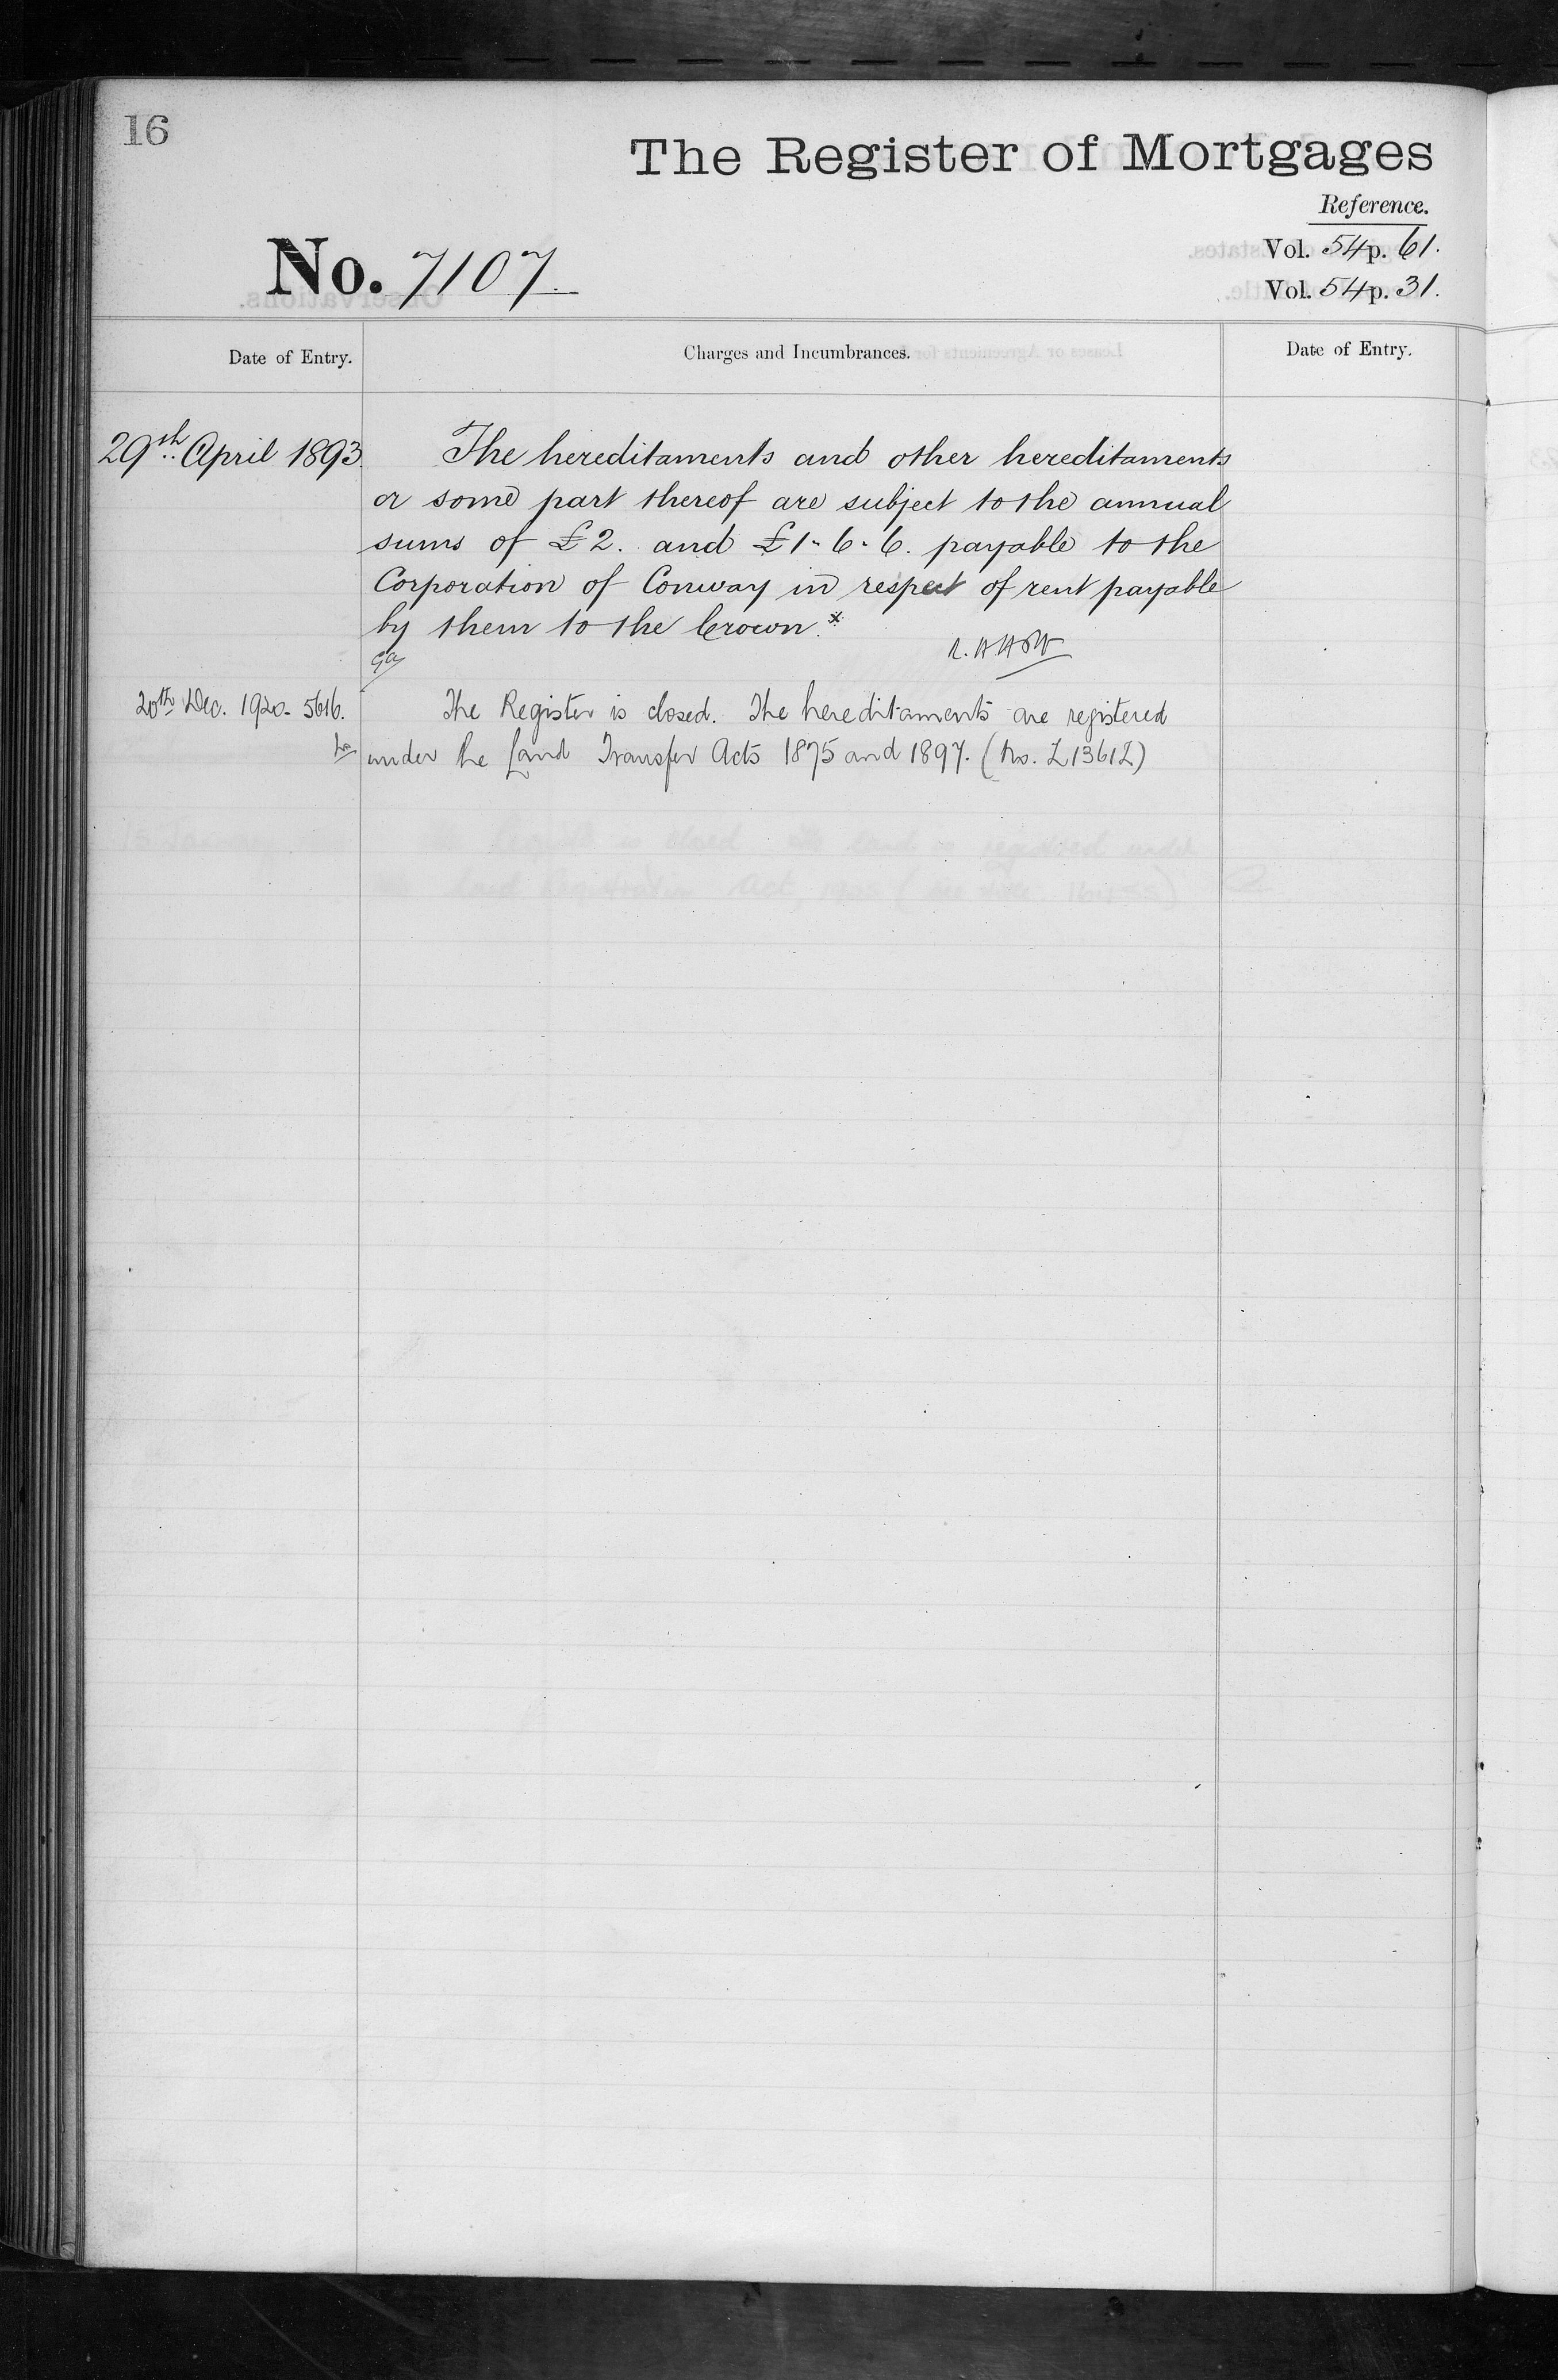 16
The Register of Mortgages
Reference.
No. 7107.
Vol. 54 p. 61.
Vol. 54 p. 31.
Date of Entry.
Charges and Incumbrances.
Date of Entry.
29th April 1893.
The hereditaments and other hereditaments
or some part thereof are subject to the annual
sums of £2. and £1-6-6. payable to the
Corporation of Conway in respect of rent payable
by them to the Crown.*
20th Dec. 1920. 5616.
The Register is closed. The hereditaments are registered
under the Land Transfer Acts 1875 and 1897. (No.